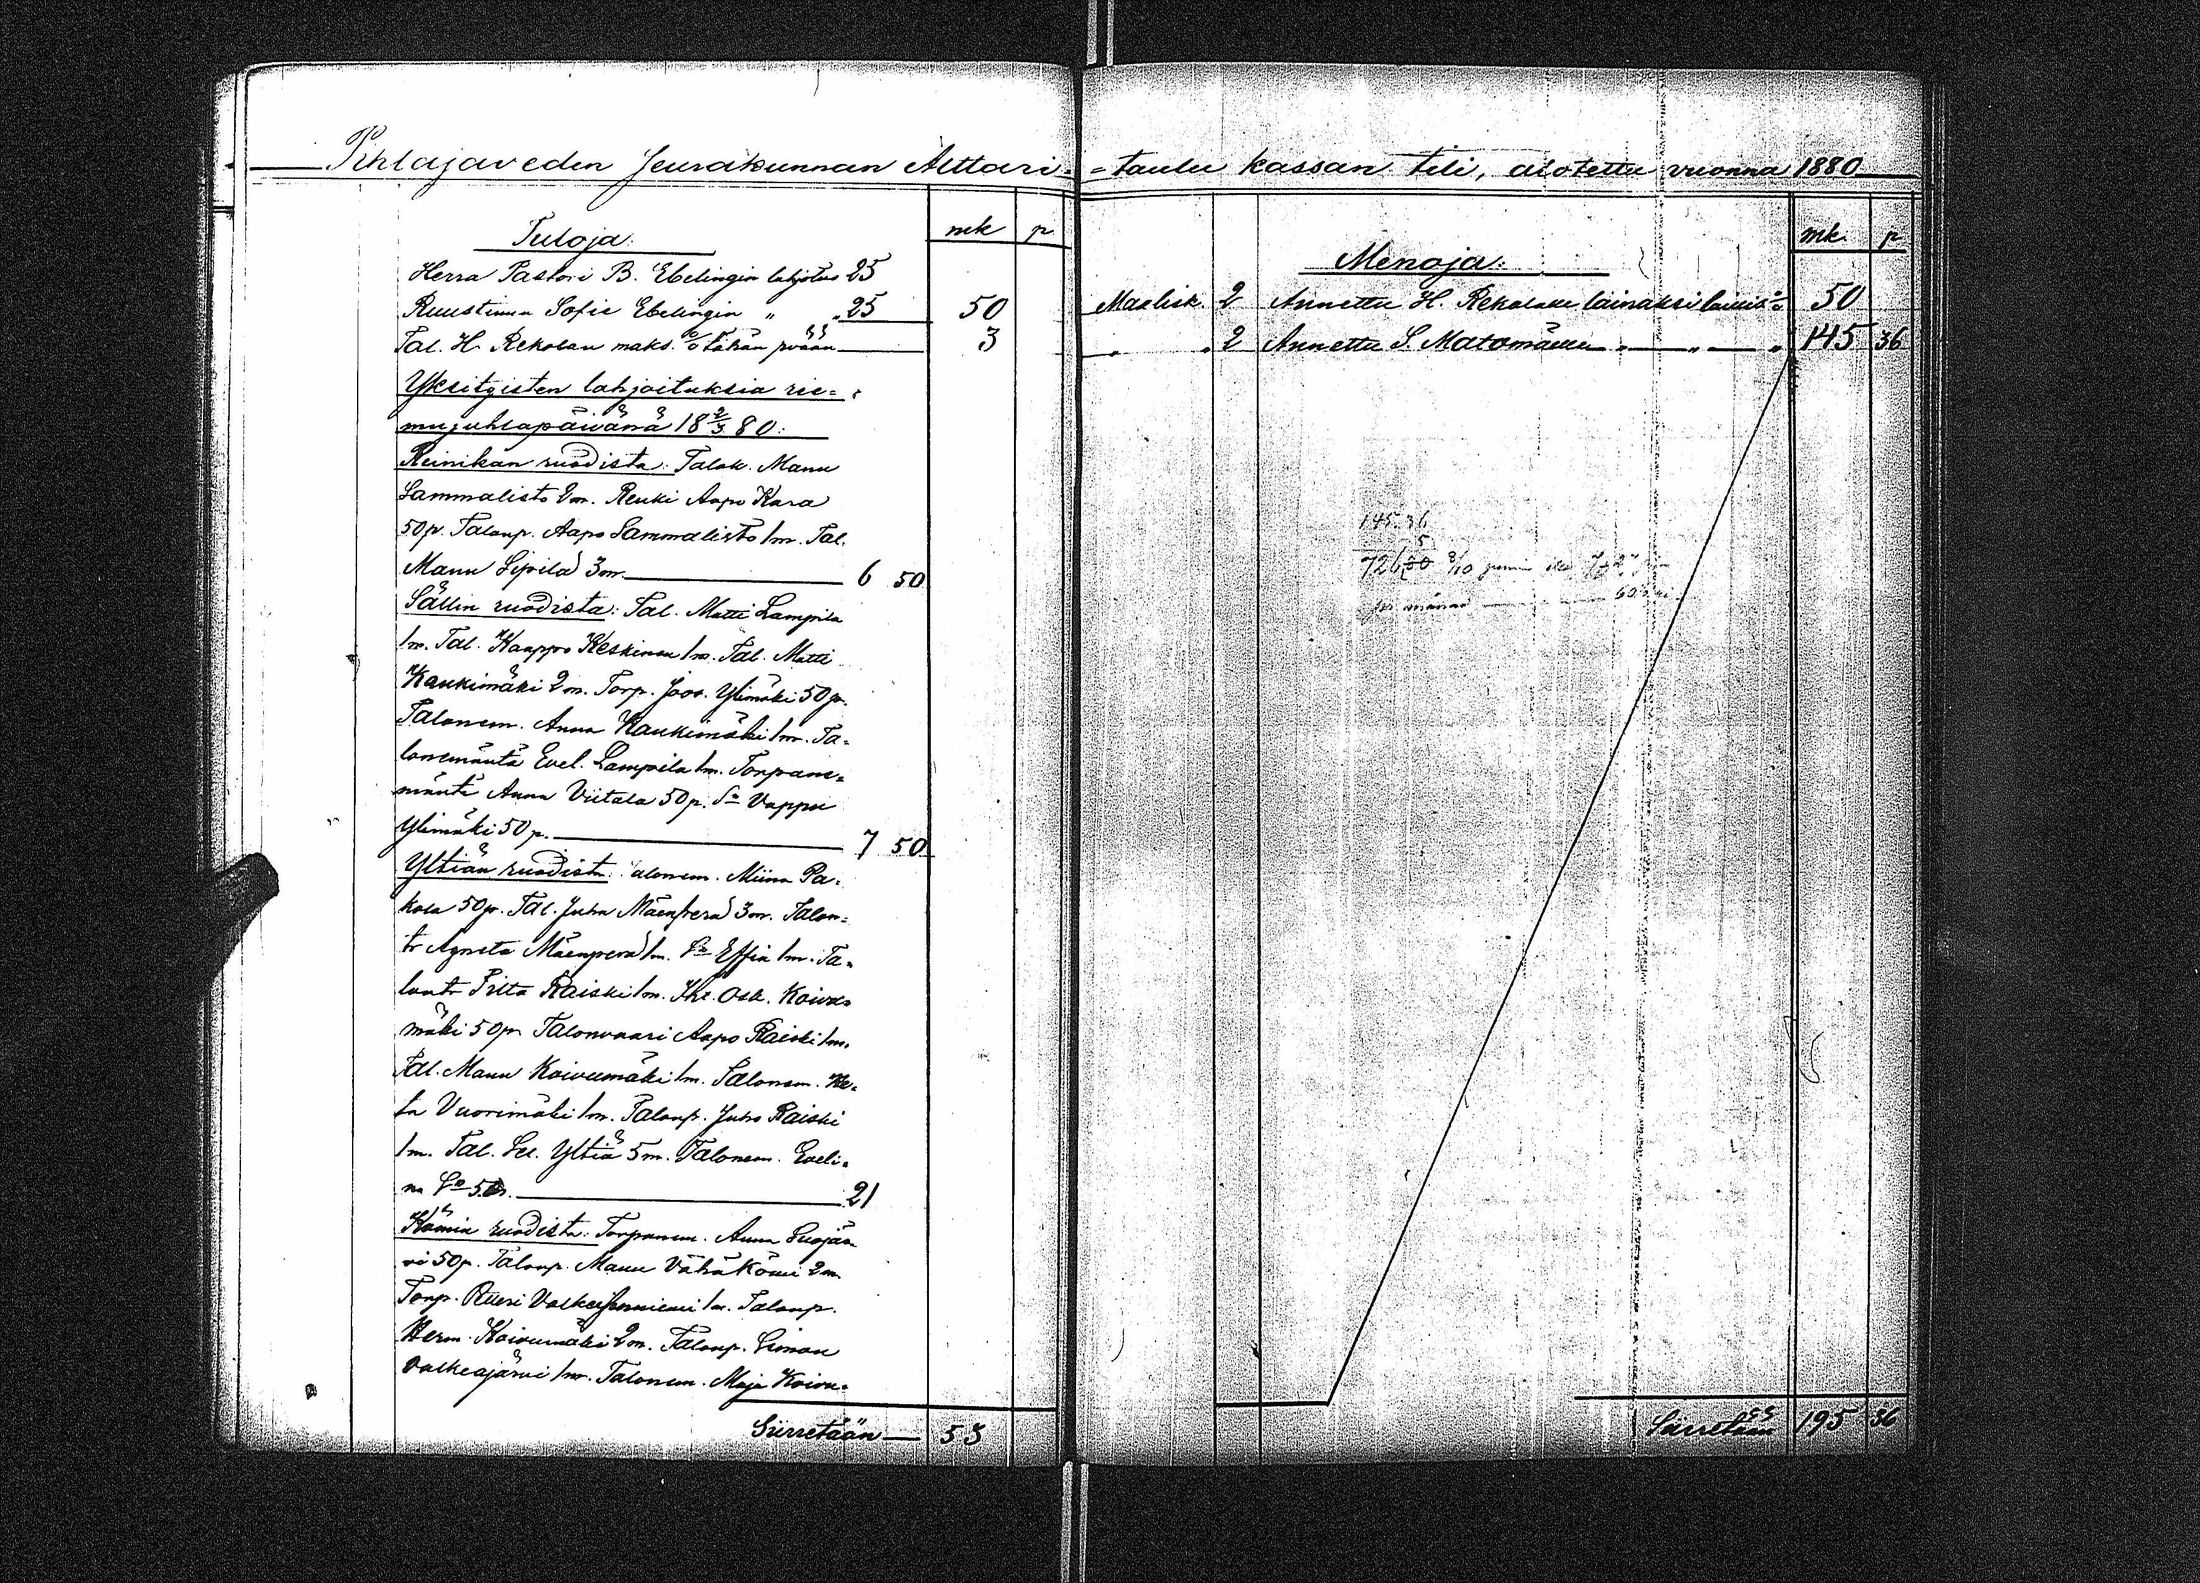 Pihlajaveden seurakunnan Alttari=
=taulu kassan tili, alotettu vuonna 1880
mk p
Tuloja:
Herra Pastori B. Ebelingin lahjotus 25
Ruustinna Sofie Ebelingin " " 25 50
Tal. H. Rekolan maks. % tähän pvään 3
Yksityisten lahjoituksia rie=
mujuhlapäivänä 18 2/3 80:
Reinikan ruodista: Talok. Manu
Sammalisto 2m. Renki Aapo Kara
50p. Taloup. Aapo Sammalisto 1m. Tal.
Manu Sipilä 3m. 6 50
Sällin ruodista: Tal. Matti Lampila
1m. Tal. Kaappo Keskinen 1m. Tal. Matti
Kaukimäki 2m. Torp. Joos. Ylimäki 50p.
Talonem. Anna Kaukimäki 1m. Ta=
lonemäntä Evel. Lampila 1m. Torpane=
mäntä Anna Viitala 50p. Sa Vappu
Ylimäki 50p. 7 50
Yltiän ruodista: Talonem. Miina Pa=
kola 50p. Tal. Juha Mäenperä 3m. Talon=
tr Agneta Mäenperä 1m. Effia 1m. Ta=
lontr Riita Raiski 1m. Osk. Koivu=
mäki 50p. Talonvaari Aapo Raiski 1m.
Tal. Manu Koivumäki 1m. Talonem.
Vuorimäki 1m. Taloup. Juho Raiski
1m. Tal. Yltiä 5m. Talonem. Eveli=
na 21
Kömin ruodista: Torpanem. Anna Suojär
vi 50p. Taloup. Manu Vähäkömi 2m.
Torp. 1m. Taloup.
Herm. Koivumäki 2m. Taloup. Simon
Valkeajärvi 1m. Talonem. Maja Koivu=
Siirretään 53
mk p
Menoja:
Maalisk. 2 Annettu H. Rekolalle lainaksi 50
" " 2 Annettu S. Matomäelle " " " 145 36
145.36
5
726
Siirretään 195 36